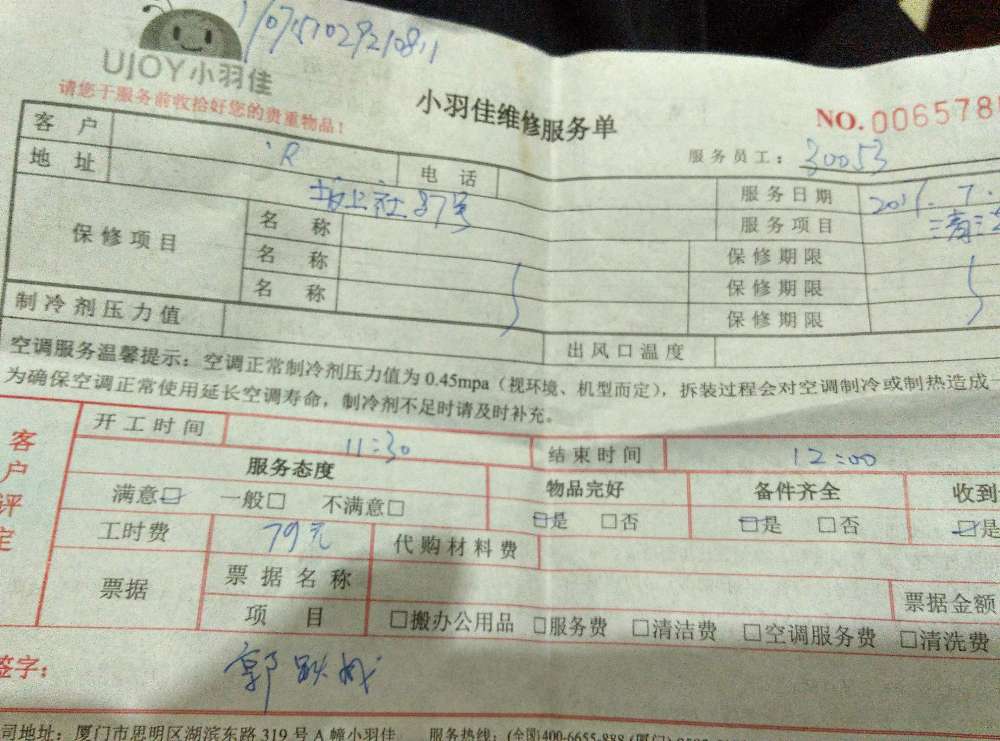 UJOY小羽佳
请您于服务前收拾好您的贵重物品!
小羽佳维修服务单
NO. 006578
服务员工: 30053
客户
地址
电话
服务日期
坂上社87号
服务项目
保修项目
名称
名称
名称
保修期限
保修期限
保修期限
制冷剂压力值
出风口温度
空调服务温馨提示: 空调正常制冷剂压力值为 0.45mpa（视环境、机型而定），拆装过程会对空调制冷或制热造成
为确保空调正常使用延长空调寿命，制冷剂不足时请及时补充。
客户评定
开工时间 11:30 结束时间 12:00
服务态度 物品完好 备件齐全 收到
满意☑ 一般□ 不满意□ ☑是 □否 ☑是 □否 ☑是
工时费 79元 代购材料费
票据 票据名称 票据金额
项目 □搬办公用品 □服务费 □清洁费 □空调服务费 □清洗费
签字:
司地址: 厦门市思明区湖滨东路 319 号 A 幢小羽佳 服务热线: (全国)400-6655-888 (厦门)